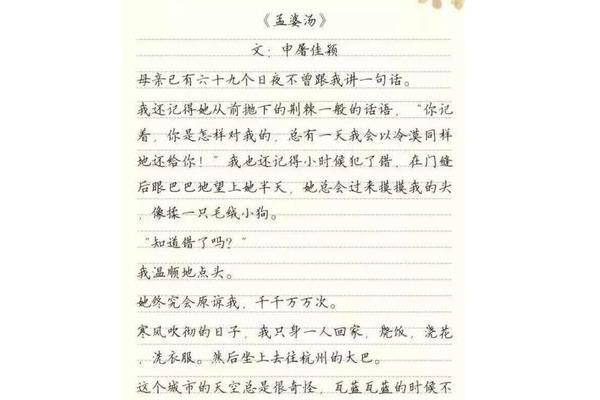 《孟婆汤》
文：申屠佳颖
母亲已有六十九个日夜不曾跟我讲一句话。
我还记得她从前抛下的荆棘一般的话语，“你记
着，你是怎样对我的，总有一天我会以冷漠同样
地还给你！”我也还记得小时候犯了错，在门缝
后眼巴巴地望上她半天，她总会过来摸摸我的头
，像揉一只毛绒小狗。
“知道错了吗？”
我温顺地点头。
她终究会原谅我，千千万万次。
寒风吹彻的日子，我只身一人回家，烧饭，浇花
，洗衣服。然后坐上去往杭州的大巴。
这个城市的天空总是很奇怪，瓦蓝瓦蓝的时候不